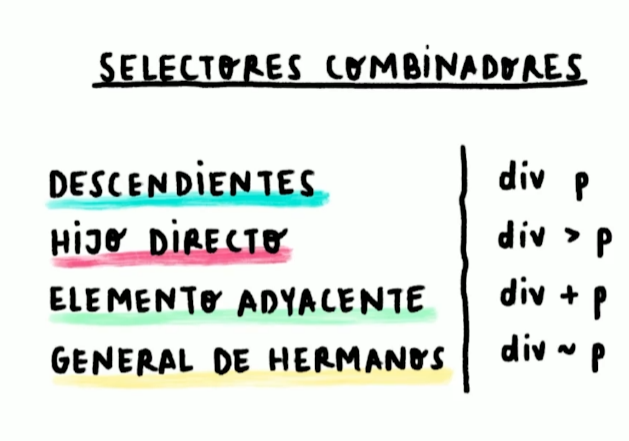 SELECTORES COMBiNADORES
DESCENDiENTES div p
HiJO DiRECTO div > p
ELEMENTO ADYACENTE div + p
GENERAL DE HERMANOS div ~ p